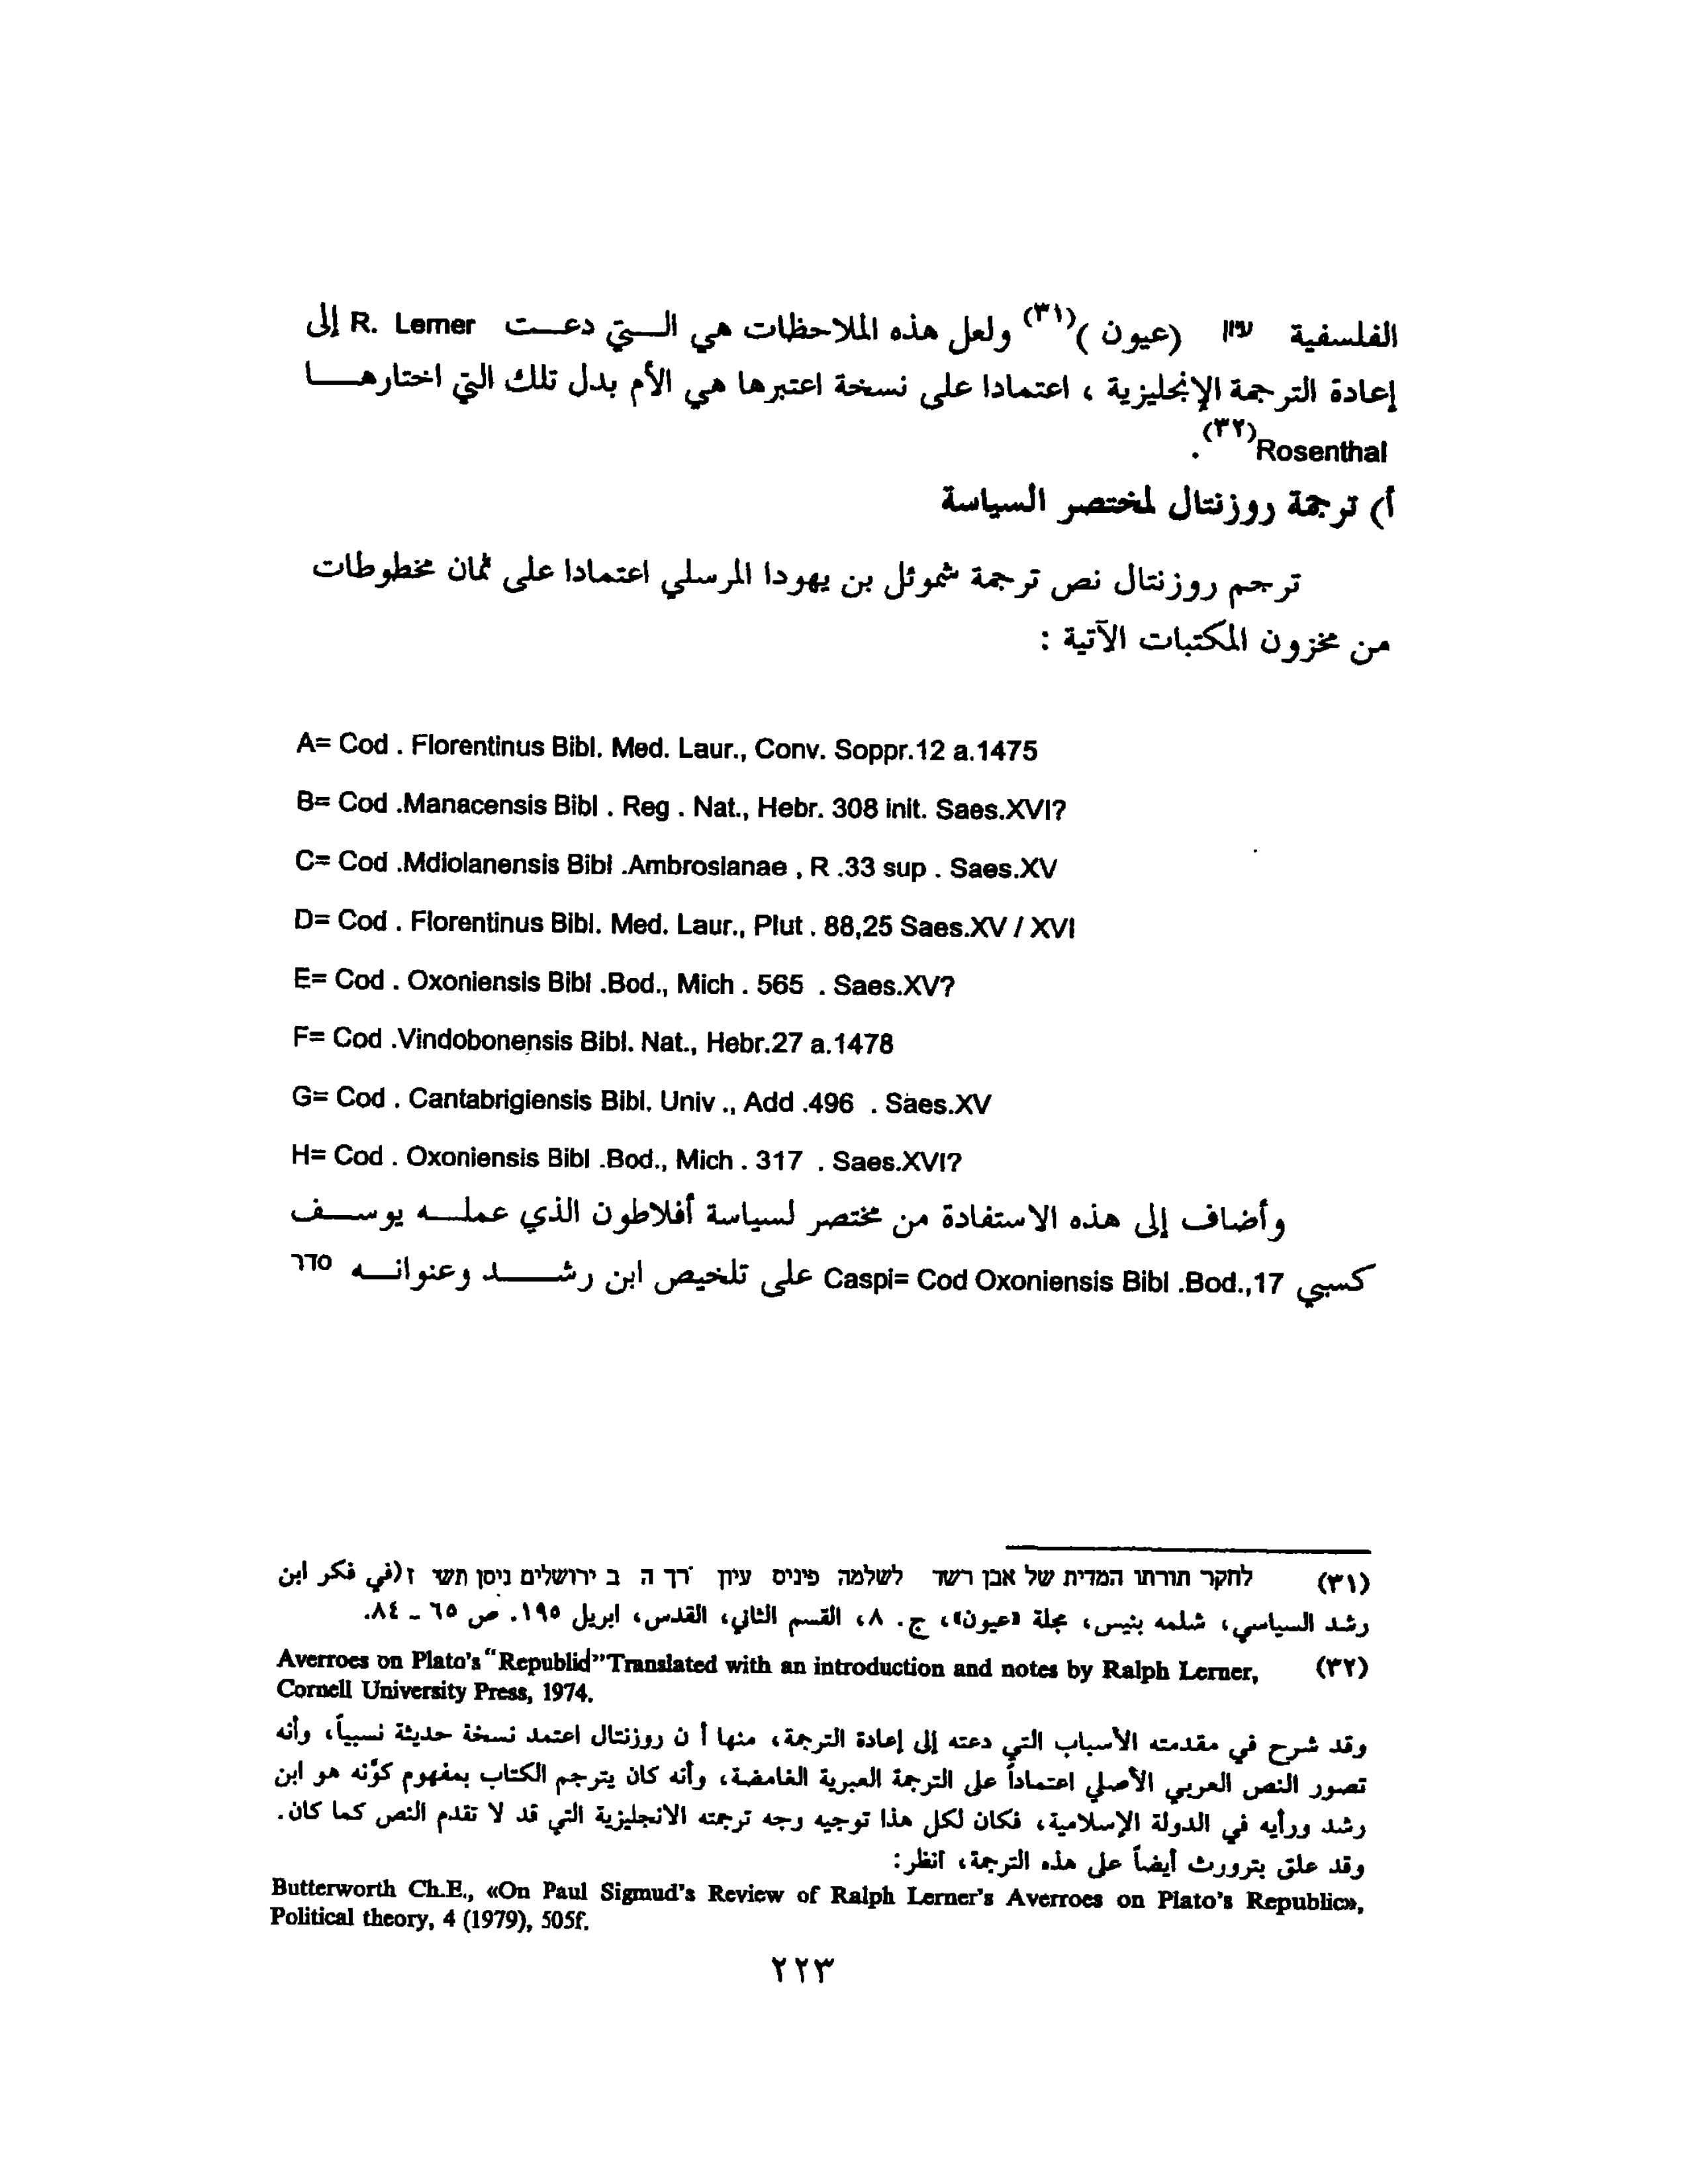 الفلسفية עיון (عيون )(٣١) ولعل هذه الملاحظات هي التي دعت R. Lerner إلى
إعادة الترجمة الإنجليزية ، اعتمادا على نسخة اعتبرها هي الأم بدل تلك التي اختارها
Rosenthal(٣٢).
أ) ترجمة روزنتال لمختصر السياسة
ترجم روزنتال نص ترجمة شموئل بن يهودا المرسلي اعتمادا على ثمان مخطوطات
من مخزون المكتبات الآتية :
A= Cod . Florentinus Bibl. Med. Laur., Conv. Soppr.12 a.1475
B= Cod .Manacensis Bibl . Reg . Nat., Hebr. 308 init. Saes.XVI?
C= Cod .Mdiolanensis Bibl .Ambrosianae , R .33 sup . Saes.XV
D= Cod . Florentinus Bibl. Med. Laur., Plut . 88,25 Saes.XV / XVI
E= Cod . Oxoniensis Bibl .Bod., Mich . 565 . Saes.XV?
F= Cod .Vindobonensis Bibl. Nat., Hebr.27 a.1478
G= Cod . Cantabrigiensis Bibl. Univ ., Add .496 . Saes.XV
H= Cod . Oxoniensis Bibl .Bod., Mich . 317 . Saes.XVI?
وأضاف إلى هذه الاستفادة من مختصر لسياسة أفلاطون الذي عمله يوسف
كسبي Caspi= Cod Oxoniensis Bibl .Bod.,17 على تلخيص ابن رشد وعنوانه
(٣١) לחקר תורתו המדית של אבן רשד לשלמה פיניס עיון רך ה ב ירושלים ניסן תשי ז (في فكر ابن
رشد السياسي، شلمه بنيس، مجلة «عيون»، ج. ٨، القسم الثاني، القدس، ابريل ١٩٥. ص ٦٥ - ٨٤.
(٣٢) Averroes on Plato's "Republid" Translated with an introduction and notes by Ralph Lerner,
Cornell University Press, 1974.
وقد شرح في مقدمته الأسباب التي دعته إلى إعادة الترجمة، منها أ ن روزنتال اعتمد نسخة حديثة نسبياً، وأنه
تصور النص العربي الأصلي اعتماداً على الترجمة العبرية الغامضة، وأنه كان يترجم الكتاب بمفهوم كوَّنه هو ابن
رشد ورأيه في الدولة الإسلامية، فكان لكل هذا توجيه وجه ترجمته الانجليزية التي قد لا تقدم النص كما كان.
وقد علق بترورث أيضاً على هذه الترجمة، انظر:
Butterworth Ch.E., «On Paul Sigmud's Review of Ralph Lerner's Averroes on Plato's Republic»,
Political theory, 4 (1979), 505f.
٢٢٣